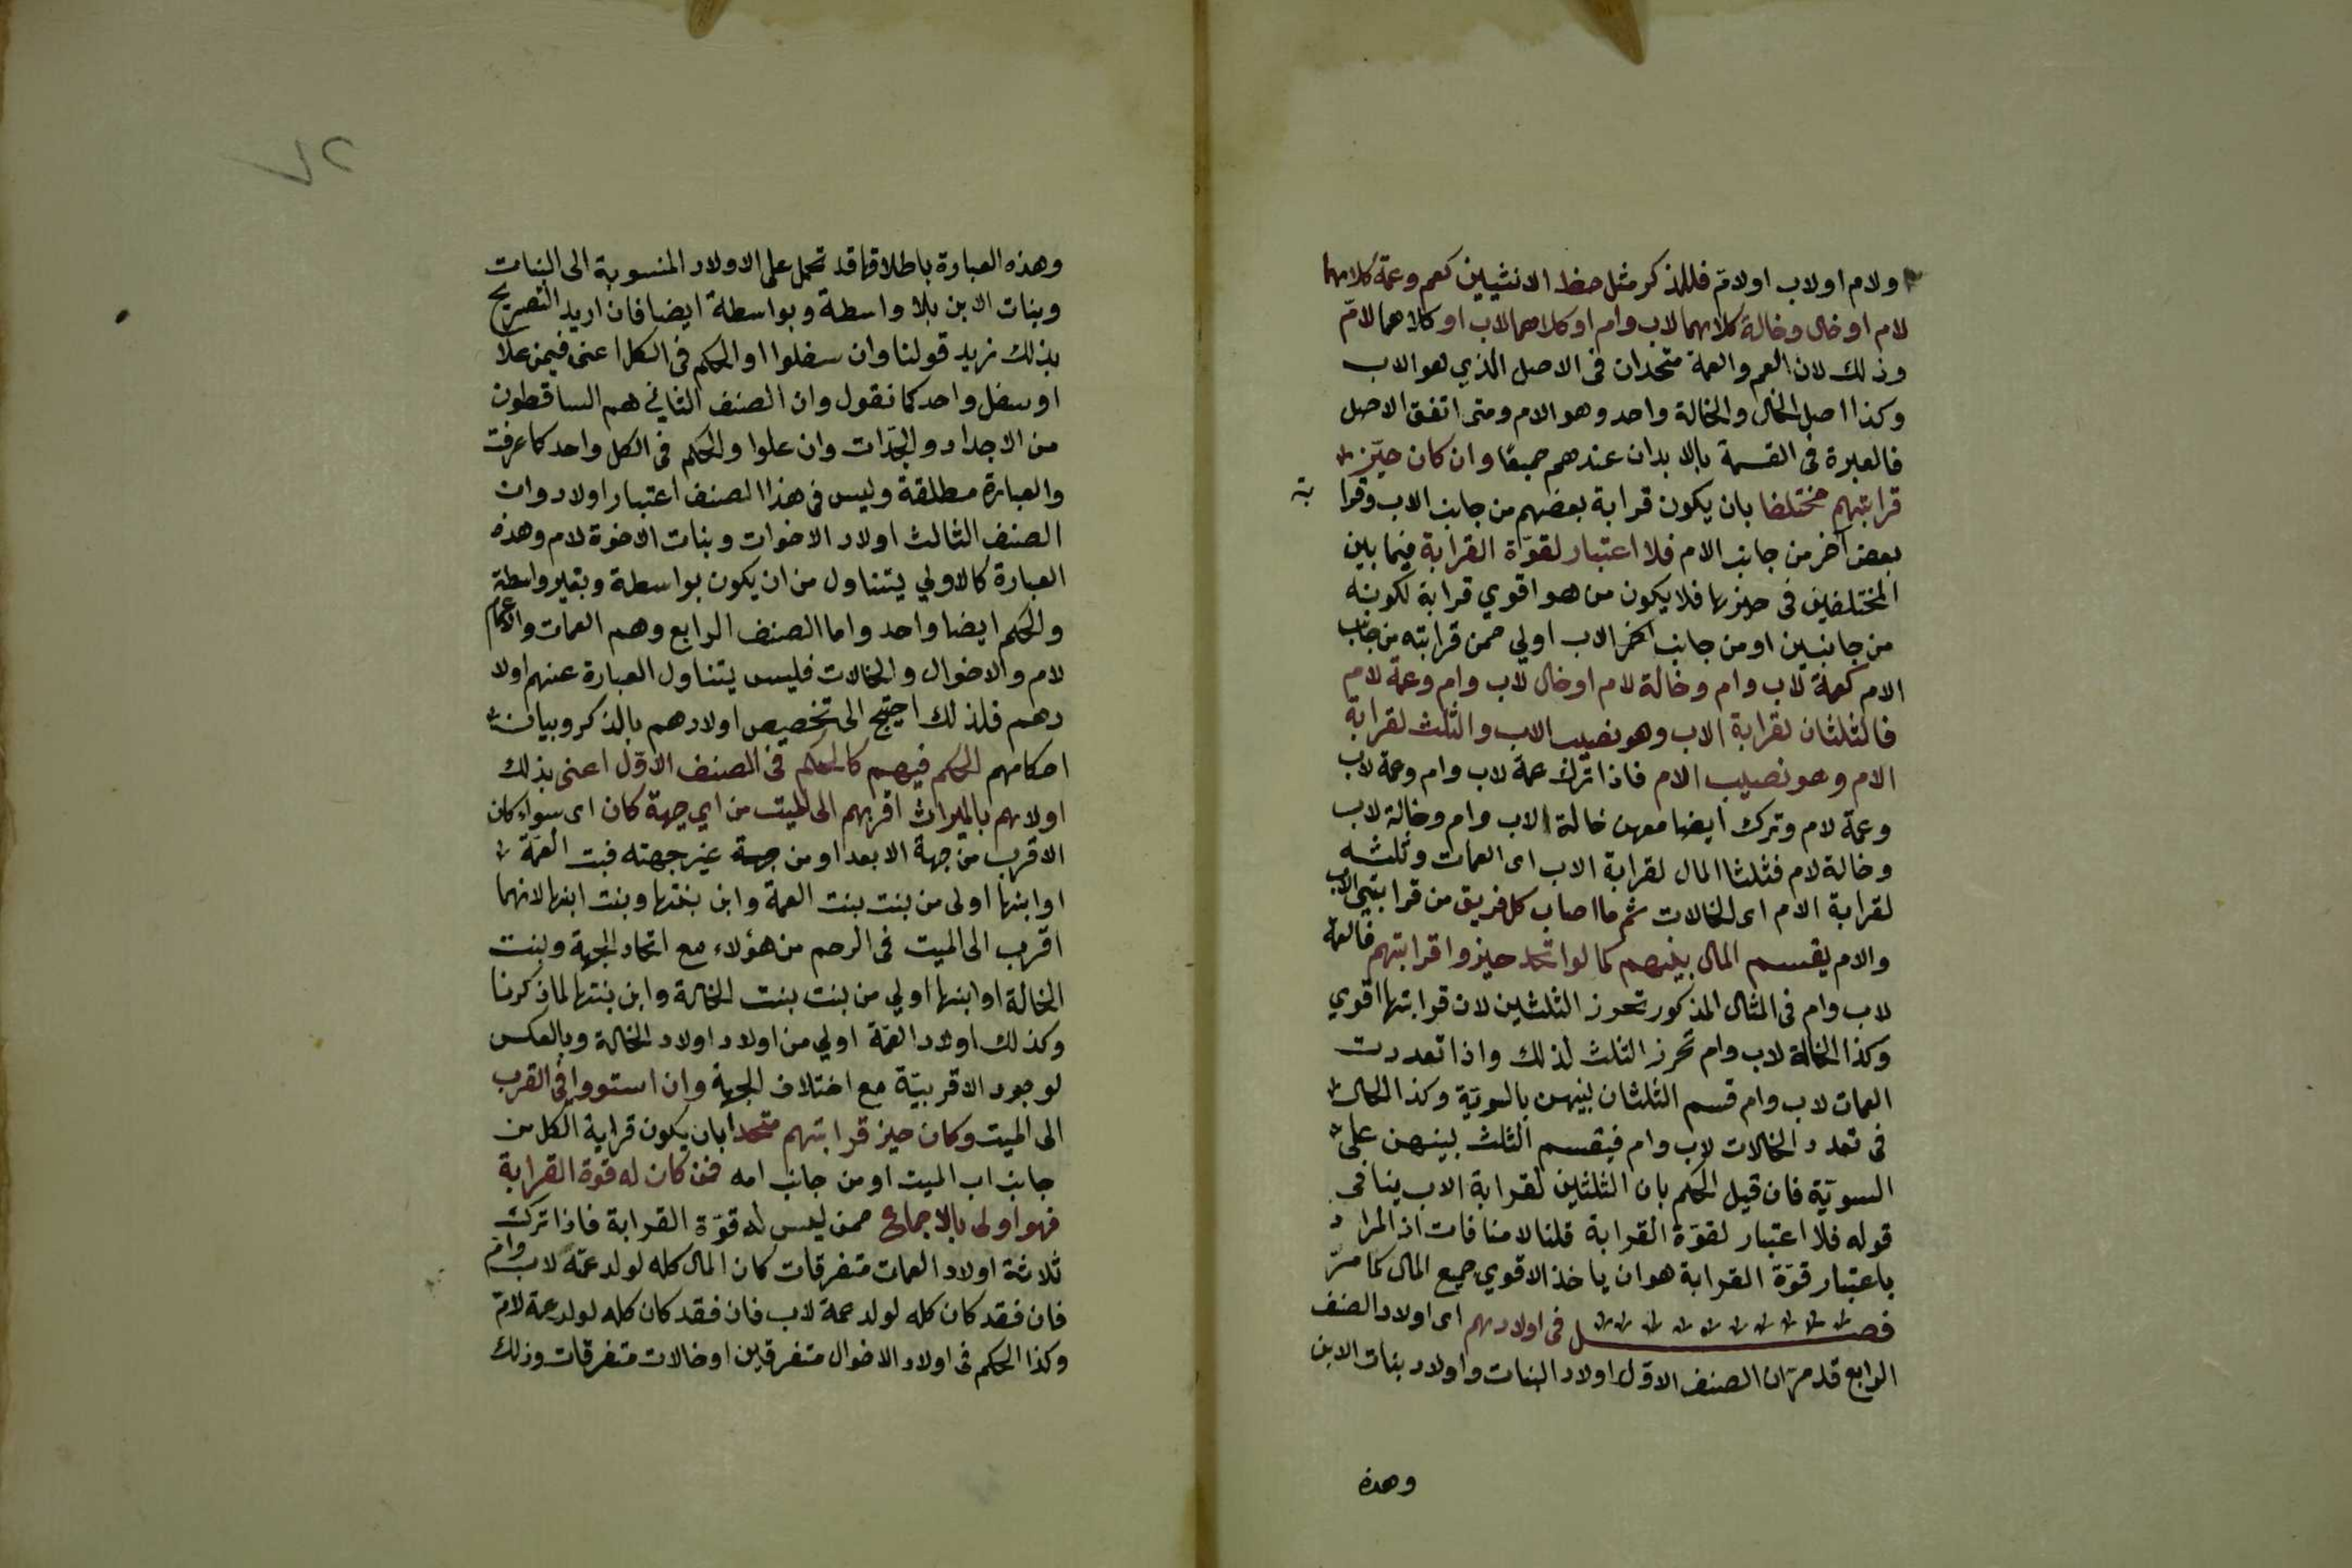 ولام اولاب اولامّ فللذكر مثل حظ الانثيين كعم وعمة كلاهما
لام او خال وخالة كلاهما لاب وام او كلاهما لاب او كلاهما لامّ
وذلك لان العم والعمة متحدان فى الاصل الذي هو الاب
وكذا اصل الخال والخالة واحد وهو الام ومتى اتفق الاصل
فالعبرة فى القسمة بالابدان عندهم جميعًا وان كان حيّز
قرابتهم مختلفا بان يكون قرابة بعضهم من جانب الاب وقرا
بة
بعض آخر من جانب الام فلا اعتبار لقوّة القرابة فيما بين
المختلفين فى حيزها فلا يكون من هو اقوي قرابة لكونه
من جانبين او من جانب الاب اولي ممن قرابته من جانب
الام كعمة لاب وام وخالة لام او خال لاب وام وعمة لام
فالثلثان لقرابة الاب وهو نصيب الاب والثلث لقرابة
الام وهو نصيب الام فاذا ترك عمة لاب وام وعمة لاب
وعمة لام وترك ايضا معهن خالة الاب وام وخالة لاب
وخالة لام فثلثا المال لقرابة الاب اى العمات وثلثه
لقرابة الام اى الخالات ثم ما اصاب كل فريق من قرابتي الاب
والام يقسم المال بينهم كما لو اتحد حيز قرابتهم فالعمة
لاب وام فى المثال المذكور تحرز الثلثين لان قرابتها اقوي
وكذا الخالة لاب وام تحرز الثلث لذلك واذا تعددت
العمات لاب وام قسم الثلثان بينهن بالسويّة وكذا الحال
فى تعدد الخالات لاب وام فيقسم الثلث بينهن على
السويّة فان قيل الحكم بان الثلثين لقرابة الاب ينافى
قوله فلا اعتبار لقوّة القرابة قلنا لا منافات اذ المراد
باعتبار قوّة القرابة هو ان ياخذ الاقوي جميع المال كما مرّ
فصل فى اولادهم اى اولاد الصنف
الرابع قد مرّ ان الصنف الاوّل اولاد البنات واولاد بنات الابن
وهذه
٧٢
وهذه العبارة باطلاقها قد تحمل على الاولاد المنسوبة الى البنات
وبنات الابن بلا واسطة وبواسطة ايضا فان اريد التصريح
بذلك نزيد قولنا وان سفلوا او الحكم فى الكل اعنى فيمن علا
او سفل واحد كما نقول وان الصنف الثاني هم الساقطون
من الاجداد والجدّات وان علوا والحكم فى الكل واحد كما عرفت
والعبارة مطلقة وليس فى هذا الصنف اعتبار اولاد وان
الصنف الثالث اولاد الاخوات وبنات الاخوة لام وهذه
العبارة كالاولي يتناول من ان يكون بواسطة وبغير واسطة
والحكم ايضا واحد واما الصنف الرابع وهم العمات والاعمام
لام والاخوال والخالات فليس يتناول العبارة عنهم اولا
دهم فلذلك احتيج الى تخصيص اولادهم بالذكر وبيان
احكامهم الحكم فيهم كالحكم فى الصنف الاوّل اعنى بذلك
اولاهم بالميراث اقربهم الى الميت من اي جهة كان اى سواء كان
الاقرب من جهة الابعد او من جهة غير جهته فبنت العمّة
او ابنها اولى من بنت بنت العمة وابن بنتها وبنت ابنها لانهما
اقرب الى الميت فى الرحم من هؤلاء مع اتحاد الجهة وبنت
الخالة او ابنها اولي من بنت بنت الخالة وابن بنتها لما ذكرنا
وكذلك اولاد العمّة اولي من اولاد اولاد الخالة وبالعكس
لوجود الاقربيّة مع اختلاف الجهة وان استووا فى القرب
الى الميت وكان حيز قرابتهم متحدا بان يكون قرابة الكل من
جانب اب الميت او من جانب امه فمن كان له قوة القرابة
فهو اولى بالاجماع ممن ليس له قوّة القرابة فاذا ترك
ثلاثة اولاد العمات متفرقات كان المال كله لولد عمّة لاب وامّ
فان فقد كان كله لولد عمة لاب فان فقد كان كله لولد عمة لامّ
وكذا الحكم فى اولاد الاخوال متفرقين او خالات متفرقات وذلك